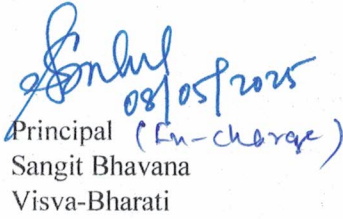 08/05/2025
Principal (In-charge)
Sangit Bhavana
Visva-Bharati